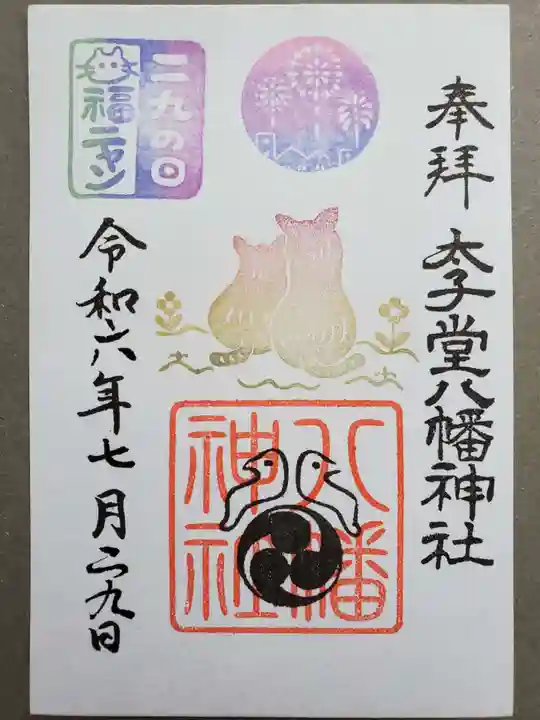 奉拝
太子堂八幡神社
二九の日
福ニャン
八幡
神社
令和六年七月二九日